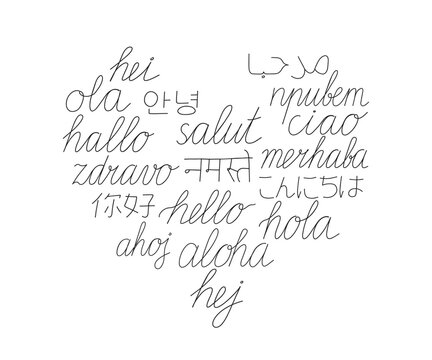 hei مرحبا
ola 안녕 привет
hallo salut ciao
zdravo नमस्ते merhaba
你好 hello こんにちは
ahoj aloha hola
hej